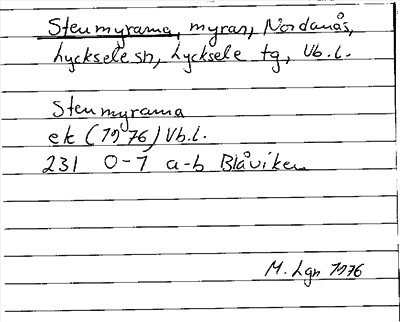 Stenmyrarna, myran, Nordanås,
Lycksele sn, Lycksele tg, Vb.l.
Stenmyrarna
ek (1976) Vb.l.
231 0-1 a-b Blåviken
M. Lgn 1976